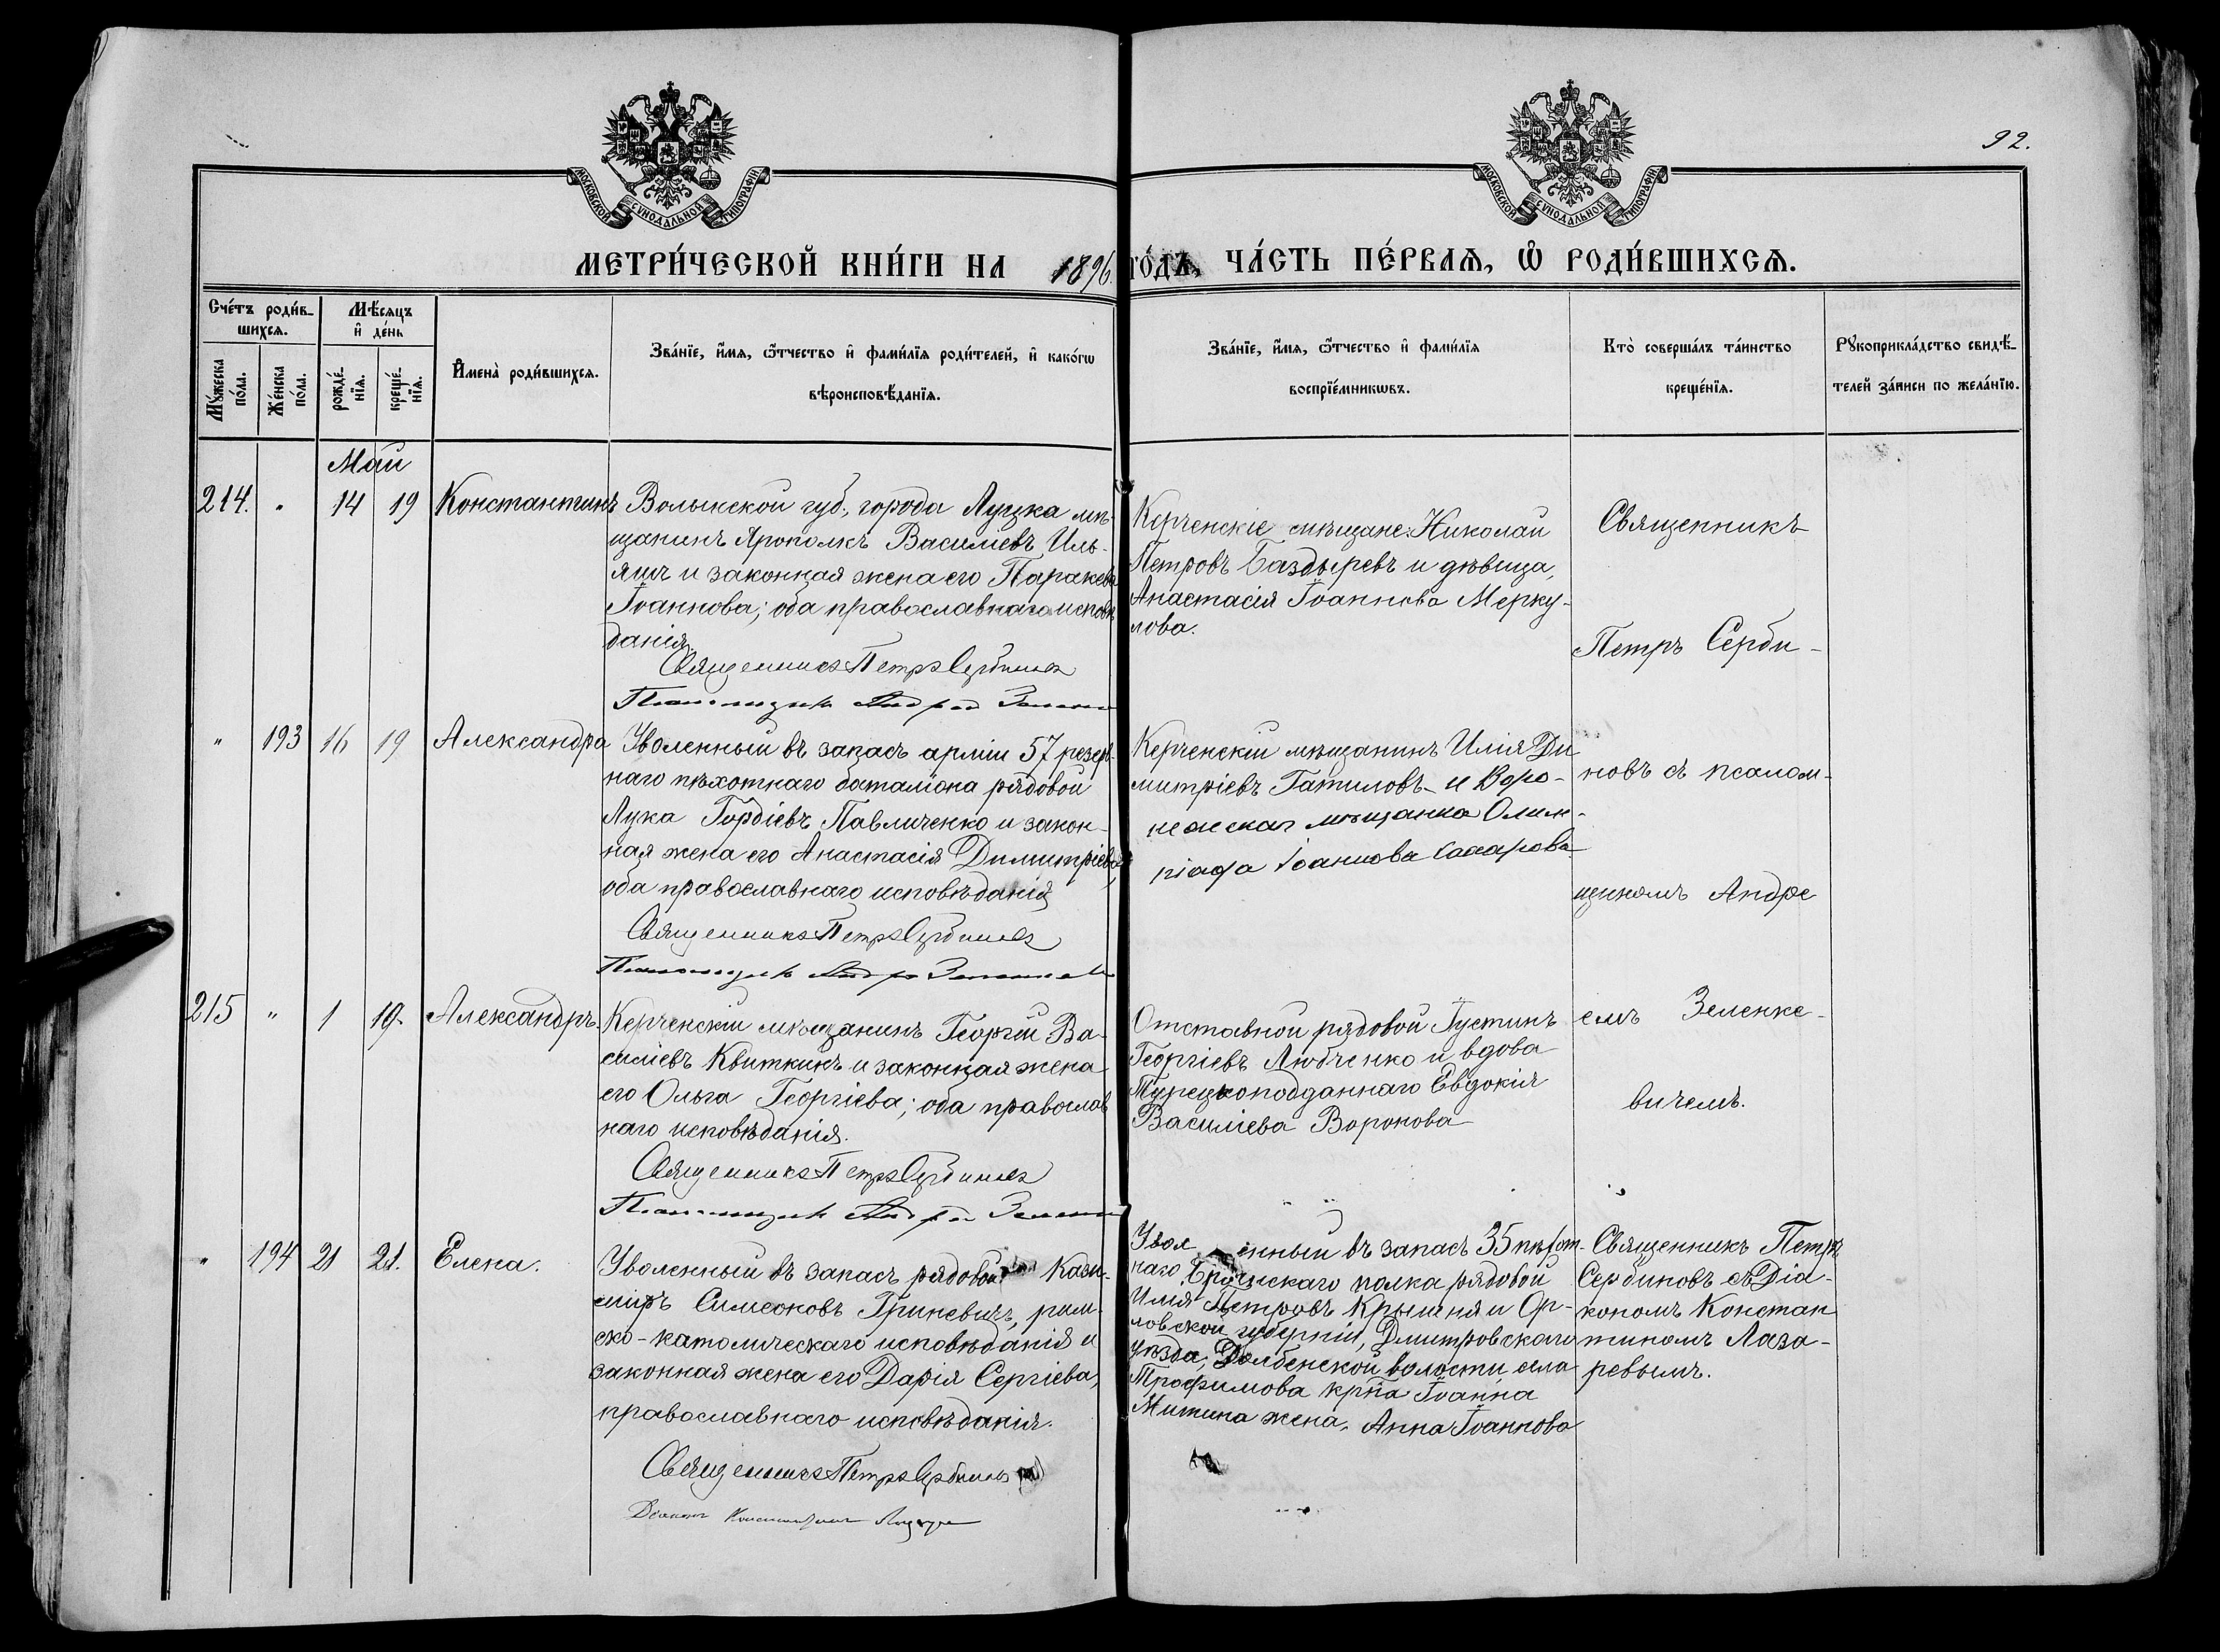 92.
МОСКОВСКОЙ СѴНОДАЛЬНОЙ ТИПОГРАФІИ
МОСКОВСКОЙ СѴНОДАЛЬНОЙ ТИПОГРАФІИ
МЕТРИ́ЧЕСКОЙ КНИ́ГИ НА 1896. ГО́ДЪ, ЧА́СТЬ ПЕ́РВАѦ, Ѡ҆ РОДИ́ВШИХСѦ.
Сче́тъ роди́в-
шихсѧ.
Мꙋ́жеска по́ла.
Же́нска по́ла.
Мѣ́сѧцъ
и҆ де́нь
рожде́-нїѧ.
креще́-нїѧ.
И҆мена̀ роди́вшихсѧ.
Зва́нїе, и҆́мѧ, ѻ҆́тчество и҆ фами́лїѧ роди́телей, и҆ како́гѡ
вѣроисповѣ́данїѧ.
Зва́нїе, и҆́мѧ, ѻ҆́тчество и҆ фами́лїѧ
воспрїе́мникѡвъ.
Кто̀ соверша́лъ та́инство
креще́нїѧ.
Рꙋкоприкла́дство свидѣ́-
телей за́писи по жела́нїю.
Май
214. " 14 19 Константинъ
Волынской губ., города Луцка мѣ-
щанинъ Ярополкъ Василіевъ Иль-
яшъ и законная жена его Параскева
Іоаннова; оба православнаго исповѣ
данія.
Священникъ Петръ Сербиновъ
Псаломщикъ Андрей
Керченскіе мѣщане: Николай
Петровъ Баздыревъ и дѣвица,
Анастасія Іоаннова Мерку-
лова.
Священникъ
Петръ Серби-
" 193 16 19 Александра
Уволенный въ запасъ арміи 57 резерв-
наго пѣхотнаго баталіона рядовой
Лука Гордіевъ Павличенко и закон-
ная жена его Анастасія Димитріева,
оба православнаго исповѣданія
Священникъ Петръ Сербиновъ
Псаломщикъ Андрей
Керченскій мѣщанинъ Илія Ди
митріевъ Гатиловъ и Воро-
нежская мѣщанка Олим-
піада Іоаннова
новъ съ псалом-
щикомъ Андре
215 " 1 19. Александръ.
Керченскій мѣщанинъ Георгій Ва-
силіевъ Квиткинъ и законная жена
его Ольга Георгіева; оба православ
наго исповѣданія.
Священникъ Петръ Сербиновъ
Псаломщикъ Андрей
Отставной рядовой Іустинъ
Георгіевъ Любченко и вдова
Турецкоподданнаго Евдокія
Василіева Воронова
емъ Зеленке-
вичемъ.
" 194 21 21. Елена.
Уволенный въ запасъ рядовой Кази-
міръ Симеоновъ Гриневичъ, рим-
ско-католическаго исповѣданія и
законная жена его Дарія Сергіева,
православнаго исповѣданія.
Священникъ Петръ Сербиновъ
Діаконъ Константинъ
Уволенный въ запасъ 35 пѣхот-
наго Брянскаго полка рядовой
Илія Петровъ Крышня и Ор-
ловской губерніи, Дмитровскаго
уѣзда, Долбенской волости села
Трофимова крн̃а Іоанна
Митина жена, Анна Іоаннова
Священникъ Петръ
Сербиновъ съ Діа-
кономъ Констан
тиномъ Лаза-
ревымъ.